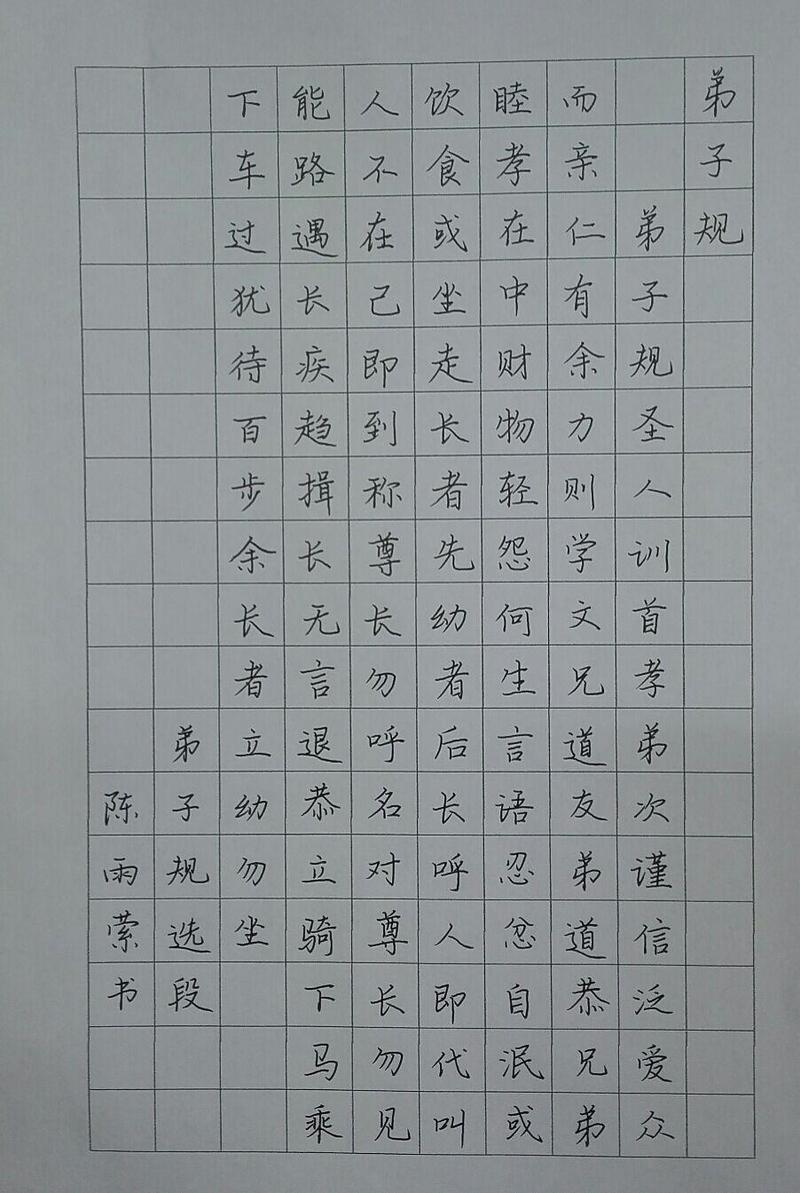 弟子规
弟子规圣人训首孝弟次谨信泛爱众
而亲仁有余力则学文兄道友弟道恭兄弟
睦孝在中财物轻怨何生言语忍忿自泯或
饮食或坐走长者先幼者后长呼人即代叫
人不在己即到称尊长勿呼名对尊长勿见
能路遇长疾趋揖长无言退恭立骑下马乘
下车过犹待百步余长者立幼勿坐
弟子规选段
陈雨萦书